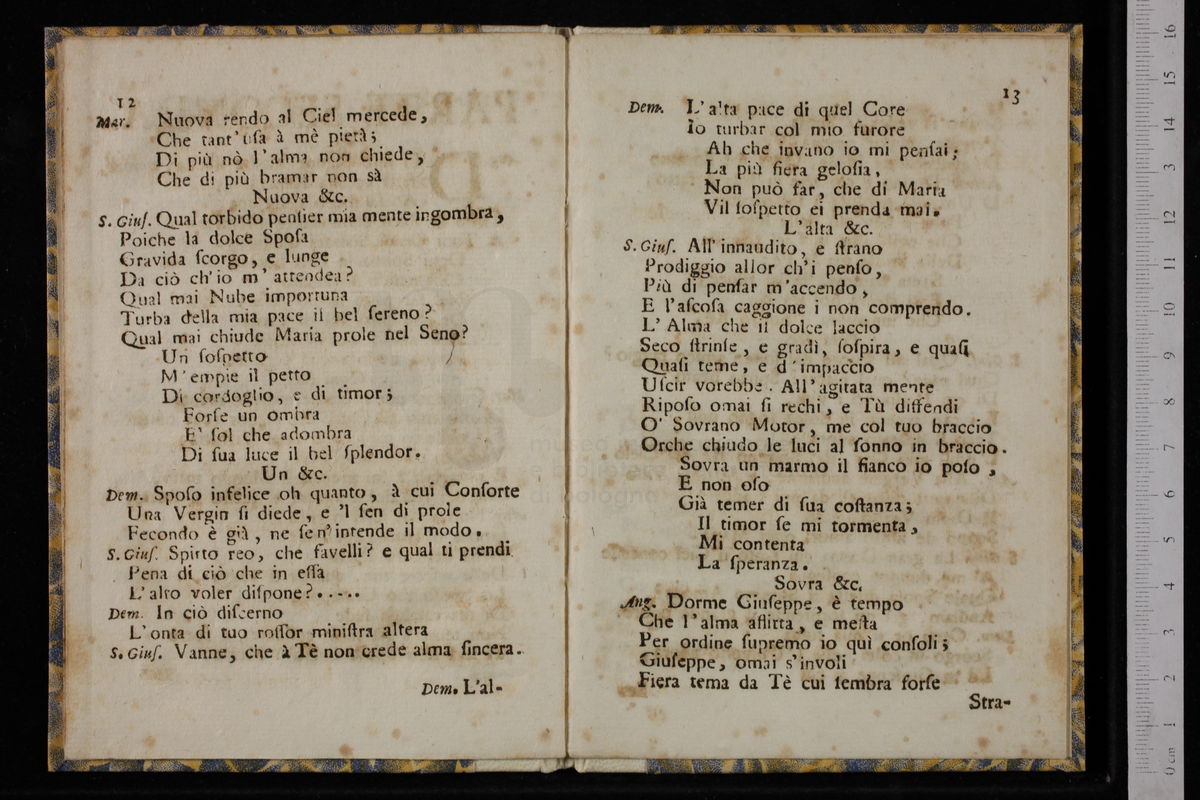 12
Mar. Nuova rendo al Ciel mercede,
Che tant' uſa à mè pietà;
Di più nò l'alma non chiede,
Che di più bramar non sà
Nuova &c.
S. Giuſ. Qual torbido penſier mia mente ingombra,
Poiche la dolce Spoſa
Gravida ſcorgo, e lunge
Da ciò ch'io m'attendea?
Qual mai Nube importuna
Turba della mia pace il bel ſereno?
Qual mai chiude Maria prole nel Seno?
Un ſoſpetto
M'empie il petto
Di cordoglio, e di timor;
Forſe un ombra
E' ſol che adombra
Di ſua luce il bel ſplendor.
Un &c.
Dem. Spoſo infelice oh quanto, à cui Conſorte
Una Vergin ſi diede, e 'l ſen di prole
Fecondo è già, ne ſen' intende il modo.
S. Giuſ. Spirto reo, che favelli? e qual ti prendi
Pena di ciò che in eſſa
L'alto voler diſpone?.----
Dem. In ciò diſcerno
L'onta di tuo roſſor miniſtra altera
S. Giuſ. Vanne, che à Tè non crede alma ſincera.
Dem. L'al-
13
Dem. L'alta pace di quel Core
Io turbar col mio furore
Ah che invano io mi penſai;
La più fiera geloſia,
Non può far, che di Maria
Vil ſoſpetto ei prenda mai.
L'alta &c.
S. Giuſ. All' innaudito, e ſtrano
Prodiggio allor ch'i penſo,
Più di penſar m'accendo,
E l'aſcoſa caggione i non comprendo.
L' Alma che il dolce laccio
Seco ſtrinſe, e gradì, ſoſpira, e quaſi
Quaſi teme, e d'impaccio
Uſcir vorebbe. All'agitata mente
Ripoſo omai ſi rechi, e Tù diffendi
O' Sovrano Motor, me col tuo braccio
Orche chiudo le luci al ſonno in braccio.
Sovra un marmo il fianco io poſo,
E non oſo
Già temer di ſua coſtanza;
Il timor ſe mi tormenta,
Mi contenta
La ſperanza.
Sovra &c.
Ang. Dorme Giuſeppe, è tempo
Che l'alma afflitta, e meſta
Per ordine ſupremo io quì conſoli;
Giuſeppe, omai s'involi
Fiera tema da Tè cui ſembra forſe
Stra-